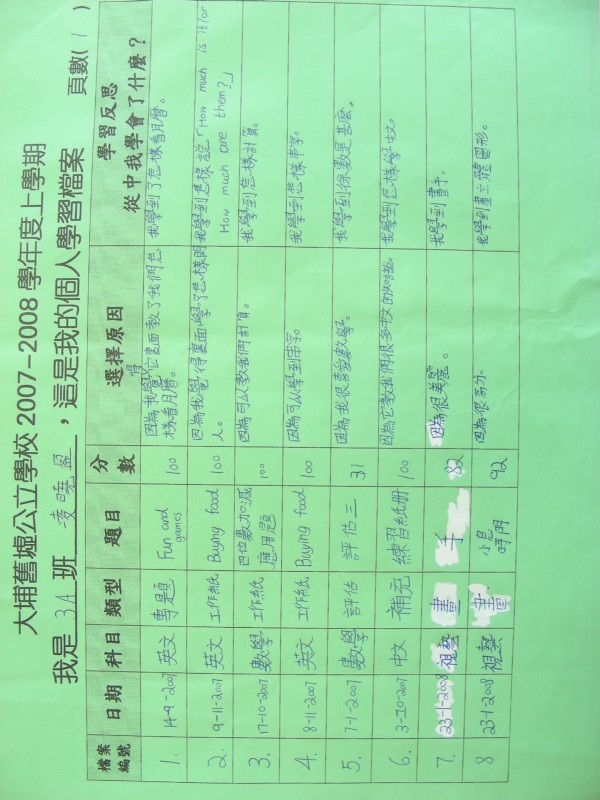 大埔舊墟公立學校 2007-2008 學年度上學期
我是 3A 班 凌曉盈,這是我的個人學習檔案 頁數( 1 )
檔案編號 日期 科目 類型 題目 分數 選擇原因 學習反思 從中我學會了什麼?
1. 14-9-2007 英文 專題 Fun and games 100 因為我覺得它裏面教了我們怎樣看月曆。 我學到了怎樣看月曆。
2. 9-11-2007 英文 工作紙 Buying food 100 因為我覺得裏面學了怎樣問人。 我學到怎樣說「How much is it? or How much are them?」
3. 17-10-2007 數學 工作紙 四位數加減應用題 100 因為可以教我們計算。 我學到怎樣計算。
4. 8-11-2007 英文 工作紙 Buying food 100 因為可以學到串字。 我學到怎樣串字。
5. 7-1-2007 數學 評估 評估三 31 因為我很喜愛數學。 我學到徐數是甚麼。
6. 3-10-2007 中文 補充 練習紙冊 100 因為它教我們很多中文的知識。 我學到怎樣學中文。
7. 23-1-2008 視藝 畫 手 82 因為很美麗。 我學到畫手。
8 23-1-2008 視藝 畫 小息時間 92 因為很高分。 我學到畫立體圖形。